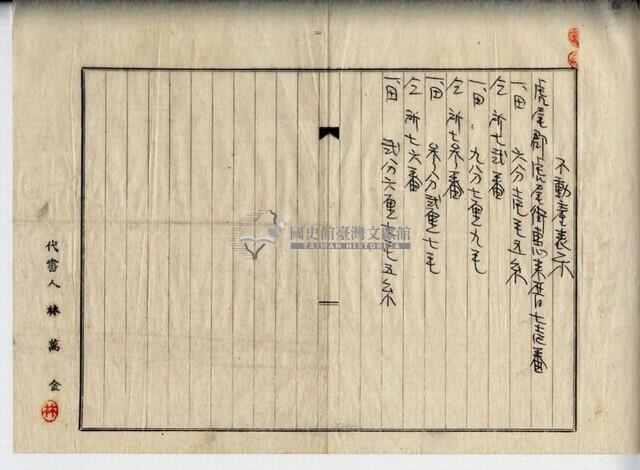 不動産表示
虎尾郡虎尾街惠来厝七壱番
一、田 六分壱毛五糸
仝所七弍番
一、田 九分七厘九毛
仝所七参番
一、田 参分弍厘七毛
仝所七六番
一、田 弍分六厘七毛五糸
代書人 林萬金
林
國史館臺灣文獻館
TAIWAN HISTORICA